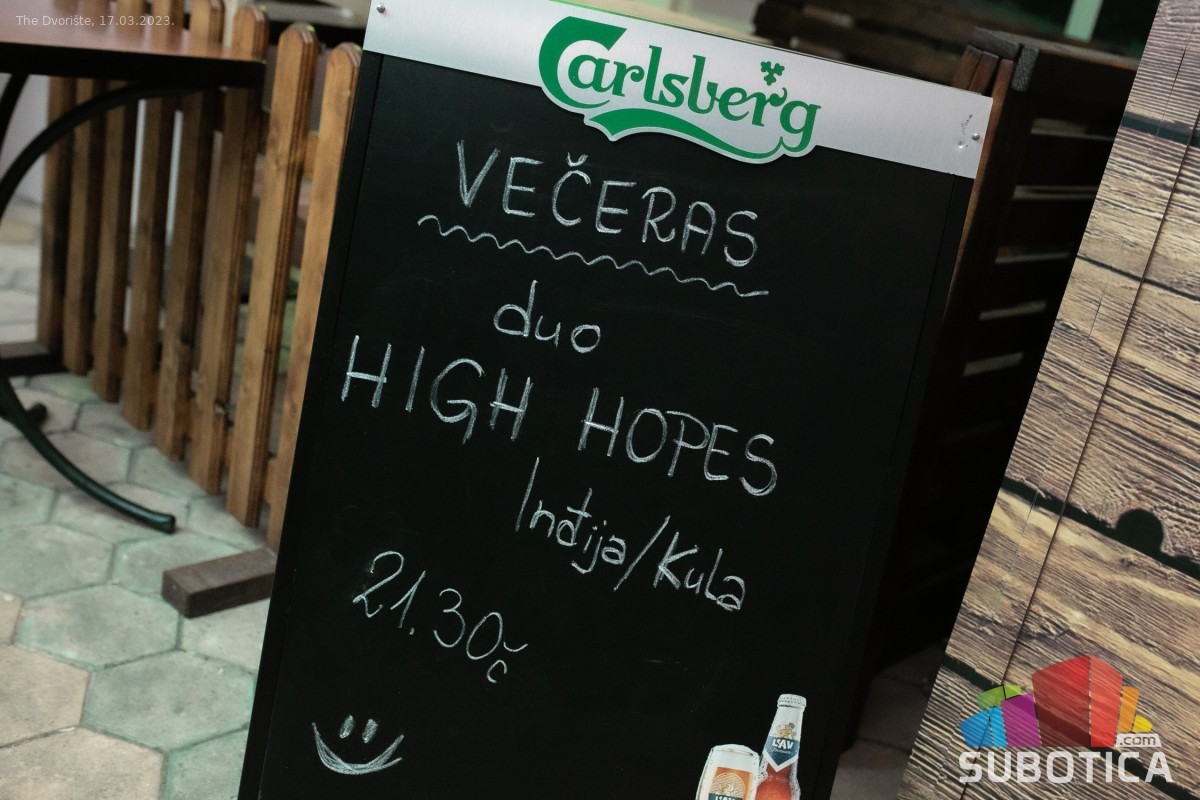 The Dvorište, 17.03.2023.
Carlsberg
VEČERAS
duo
HIGH HOPES
Inđija/Kula
21.30č
LAV
.com
SUBOTICA